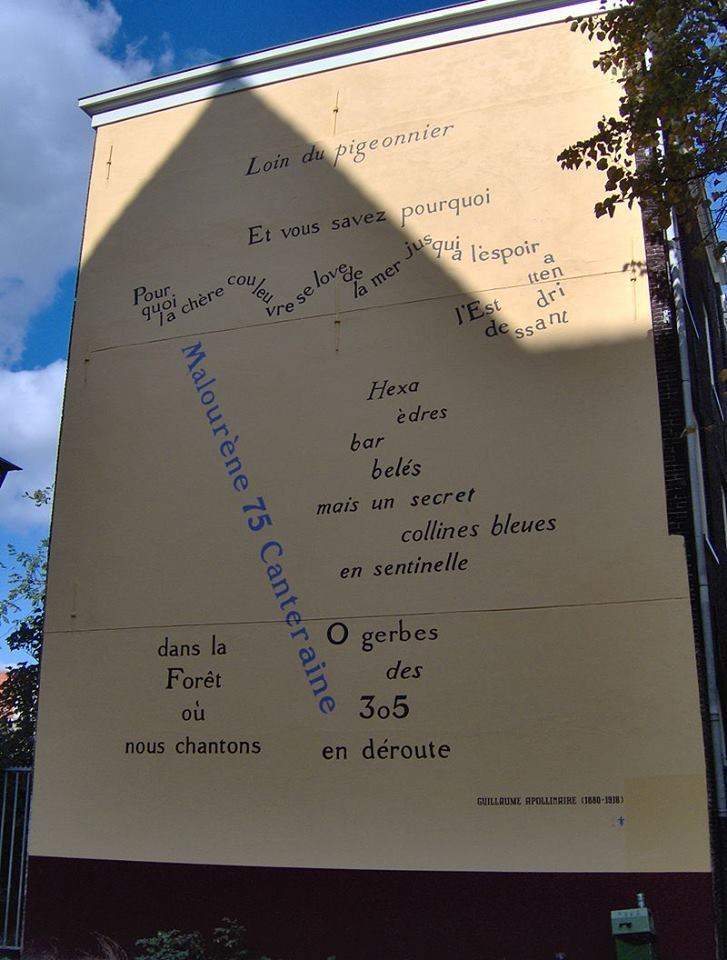 Loin du pigeonnier
Et vous savez pourquoi
Pour
quoi
la chère couleu
vre se love
de
la mer jus
qu'
à l'espoir
a
tten
dri
ssant
de
l'Est
Malourène 75 Canteraine
Hexa
èdres
bar
belés
mais un secret
collines bleues
en sentinelle
dans la
Forêt
où
nous chantons
O gerbes
des
305
en déroute
GUILLAUME APOLLINAIRE (1880-1918)